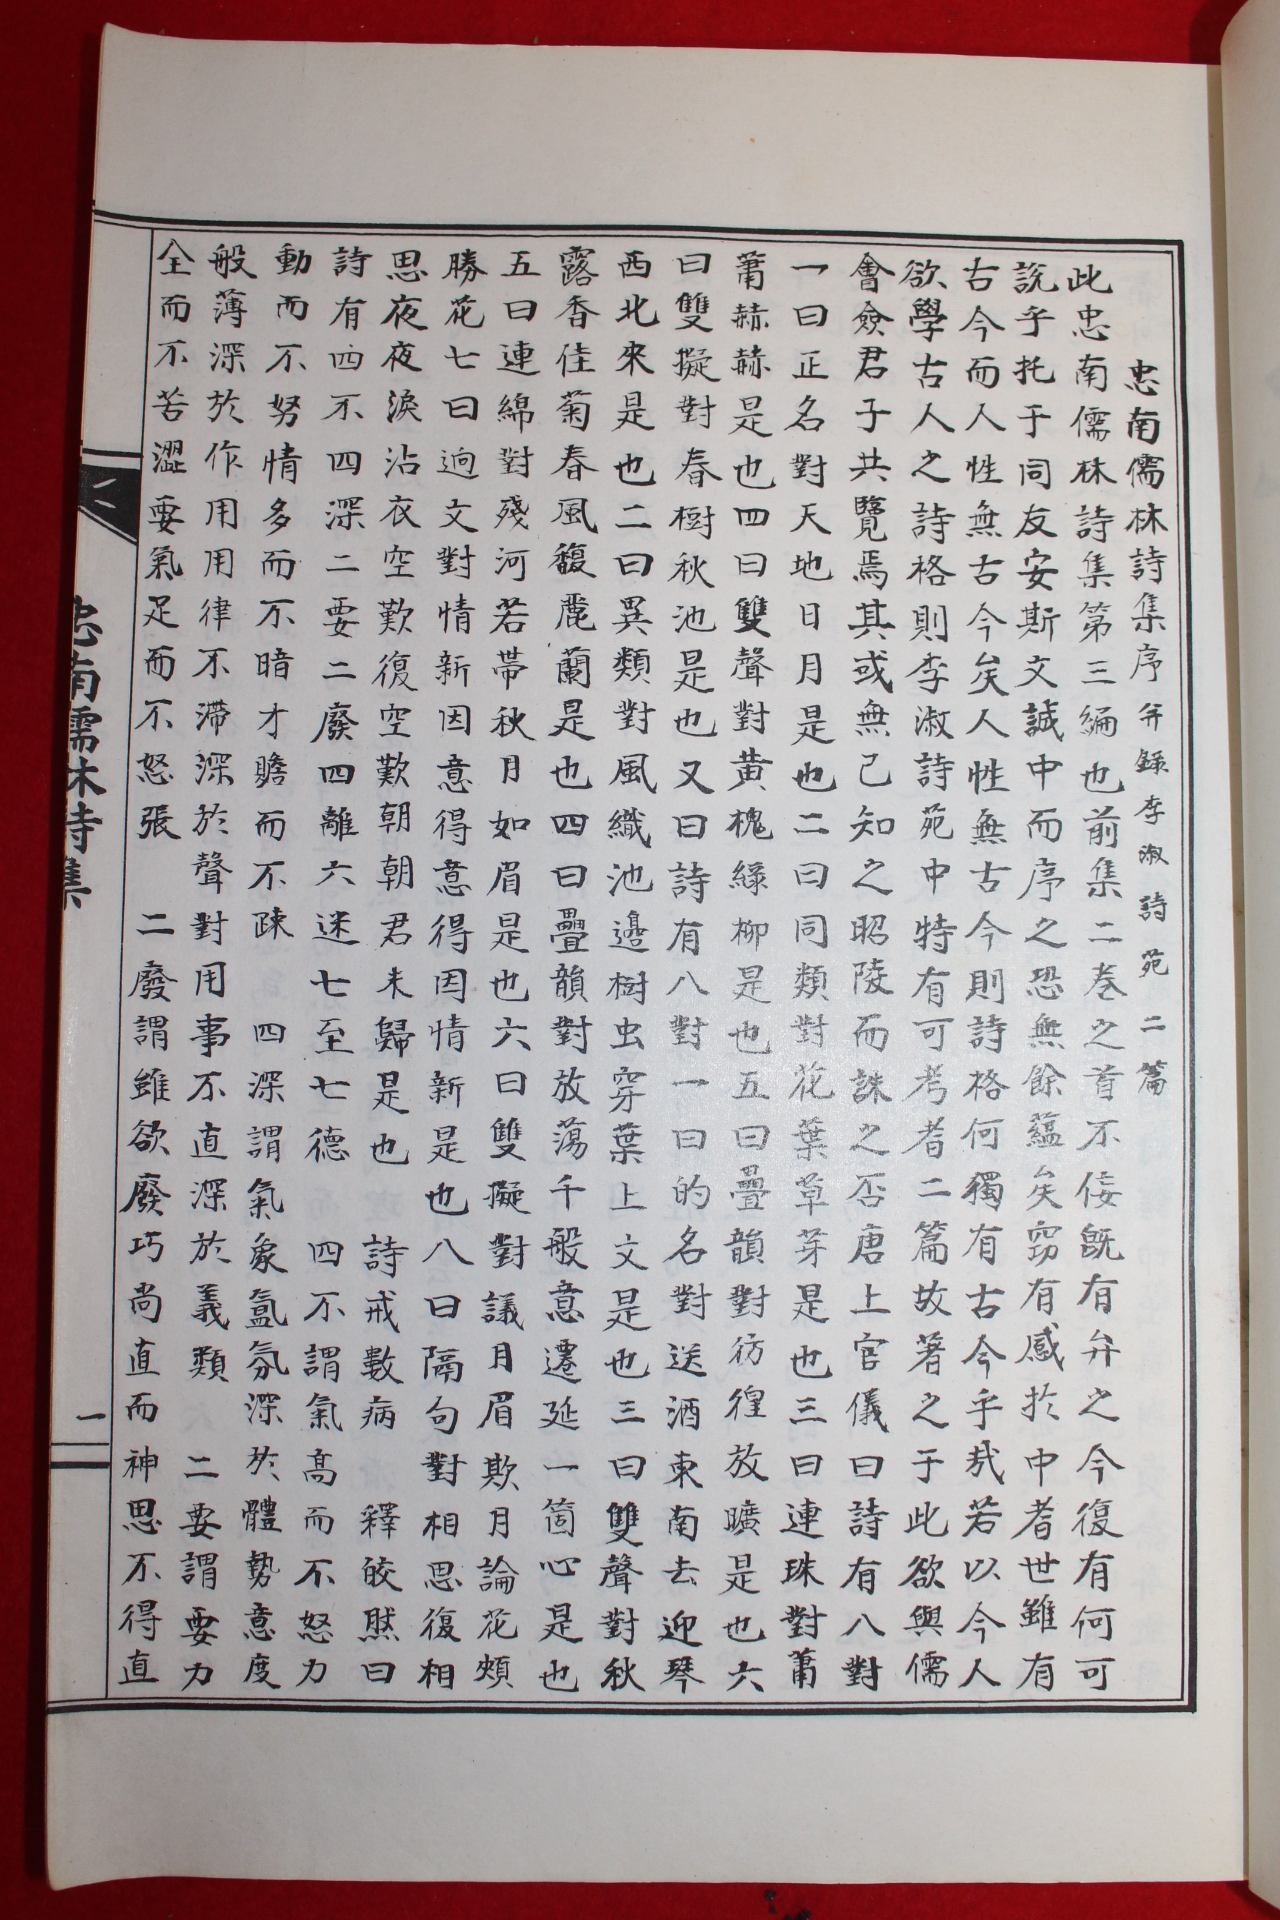 忠南儒林詩集序 并錄李淑詩苑二篇
此忠南儒林詩集第三編也前集二卷之首不佞旣有弁之今復有何可
說乎托于同友安斯文誠中而序之恐無餘蘊矣窃有感於中者世雖有
古今而人性無古今矣人性無古今則詩格何獨有古今乎哉若以今人
欲學古人之詩格則李淑詩苑中特有可考者二篇故著之于此欲與儒
會僉君子共覽焉其或無已知之昭陵而誅之否唐上官儀曰詩有八對
一曰正名對天地日月是也二曰同類對花葉草芽是也三曰連珠對蕭
蕭赫赫是也四曰雙聲對黃槐綠柳是也五曰疊韻對彷徨放曠是也六
曰雙擬對春樹秋池是也又曰詩有八對一曰的名對送酒東南去迎琴
西北來是也二曰異類對風織池邊樹虫穿葉上文是也三曰雙聲對秋
露香佳菊春風馥麗蘭是也四曰疊韻對放蕩千般意遷延一箇心是也
五曰連綿對殘河若帶秋月如眉是也六曰雙擬對 議月眉欺月論花頰
勝花七曰逈文對情新因意得意得因情新是也八曰隔句對相思復相
思夜夜淚沾衣空歎復空歎朝朝君未歸是也 詩戒數病 釋皎然曰
詩有四不四深二要二廢四離六迷七至七德 四不謂氣高而不怒力
動而不努情多而不暗才贍而不踈 四深謂氣象氳氛深於體勢意度
般薄深於作用用律不滯深於聲對用事不直深於義類 二要謂要力
全而不苦澀要氣足而不怒張 二廢謂雖欲廢巧尚直而神思不得直
忠南儒林詩集
一